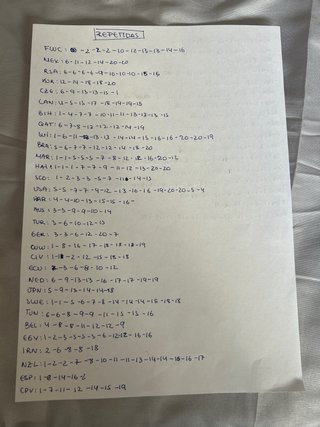 REPETIDAS
FWC: 00-2-2-2-10-12-13-13-14-16
MEX: 6-11-12-14-20-20
RSA: 6-6-6-9-10-10-10-18-15
KOR: 12-14-18-18-20
CZE: 6-9-13-13-15-1
CAN: 12-5-13-17-18-19-19-18
BIH: 1-4-7-7-10-11-11-13-12-13-15
QAT: 6-7-8-12-12-12-14-19
BRA: 5-6-7-7-12-12-14-18-20
MAR: 1-1-5-5-5-7-8-12-18-16-20-13
HAI: 1-1-1-7-7-9-11-12-13-20-20
SCO: 1-2-3-3-5-7-11-14-15
USA: 5-5-7-7-9-12-13-16-16-19-20-20-5-4
PAR: 4-4-10-13-15-15-16-
AUS: 3-3-9-9-10-14
TUR: 3-6-10-12-15
GER: 3-3-6-12-20-7
CUW: 1-8-16-17-18-18-18-19
CIV: 1-18-2-12-15-18-18
ECU: 2-3-6-8-10-12
NED: 6-9-13-13-16-17-17-19-19
JPN: 5-9-13-14-14-18
SWE: 1-1-5-6-7-8-14-14-14-15-18-18
TUN: 6-6-8-9-9-11-15-15-16
BEL: 4-8-8-11-12-12-9
EGY: 1-2-3-5-5-5-6-12-12-16-16
IRN: 2-6-8-8-18
NZL: 1-2-2-7-8-10-11-11-13-14-14-16-16-17
ESP: 1-8-14-16-2
CPV: 1-7-11-12-14-15-19